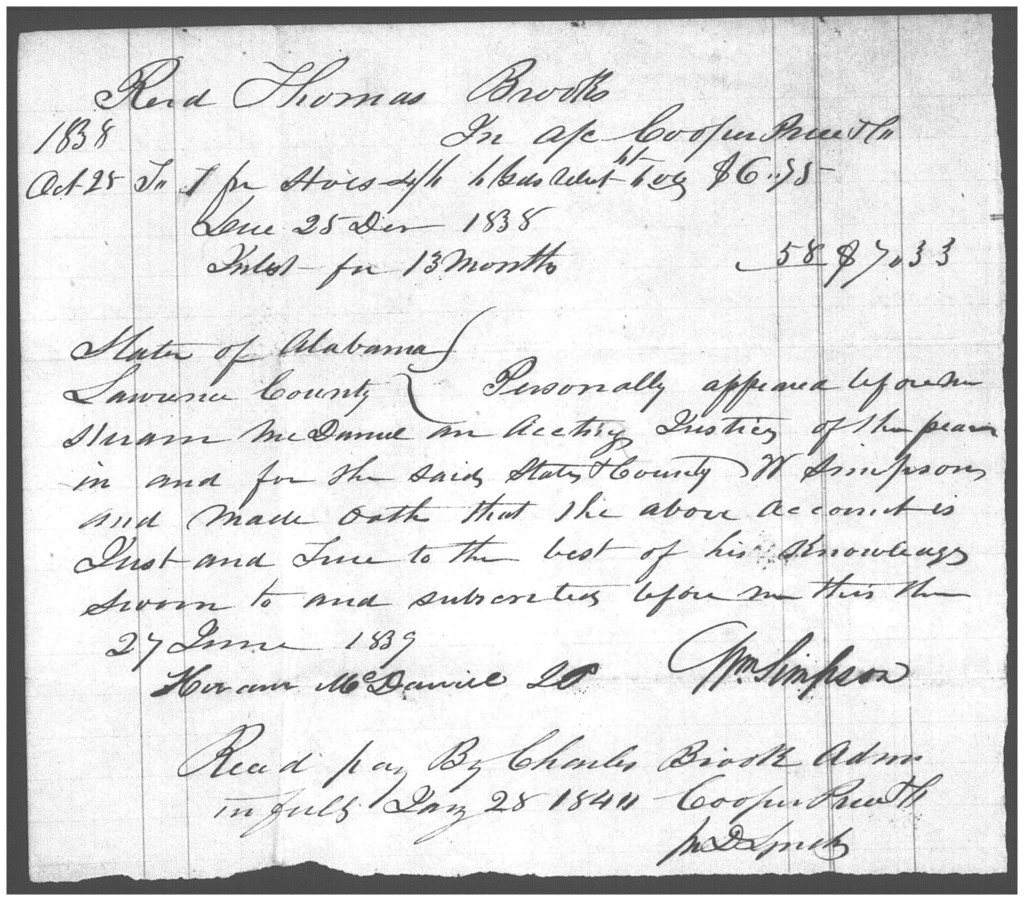 Recd Thomas Brooks
1838 In a/c Cooper Pruett
Oct 25 To 1 pr Shoes 4/6 $6.75
Due 25 Dec 1838
Intest for 13 Months 58 $7.33
State of Alabama
Lawrence County Personally appeared before me
Hiram McDaniel an Acting Justice of the peace
in and for the said State & County W Simpson
and made oath that the above Account is
Just and True to the best of his Knowledge
sworn to and subscribed before me this the
27 June 1839
Hiram McDaniel Wm Simpson
Recd pay By Charles Brooks Admr
in full Jany 28 1840 Cooper Pruett
D Lynch